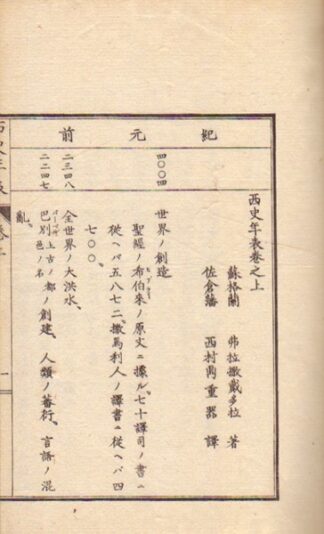 西史年表卷之上
蘇格蘭 弗拉撒戴多拉 著
佐倉藩 西村鼎重器 譯
紀元前
四〇〇四
世界ノ創造
聖經ノ希伯來ノ原文ニ據ル、七十譯司ノ書ニ
從ヘバ五八七二、撒馬利人ノ譯書ニ從ヘバ四
七〇〇、
二三四八
全世界ノ大洪水、
二二四七
巴別上古ノ都邑ノ名ノ創建、人類ノ蕃衍、言語ノ混
亂、
一